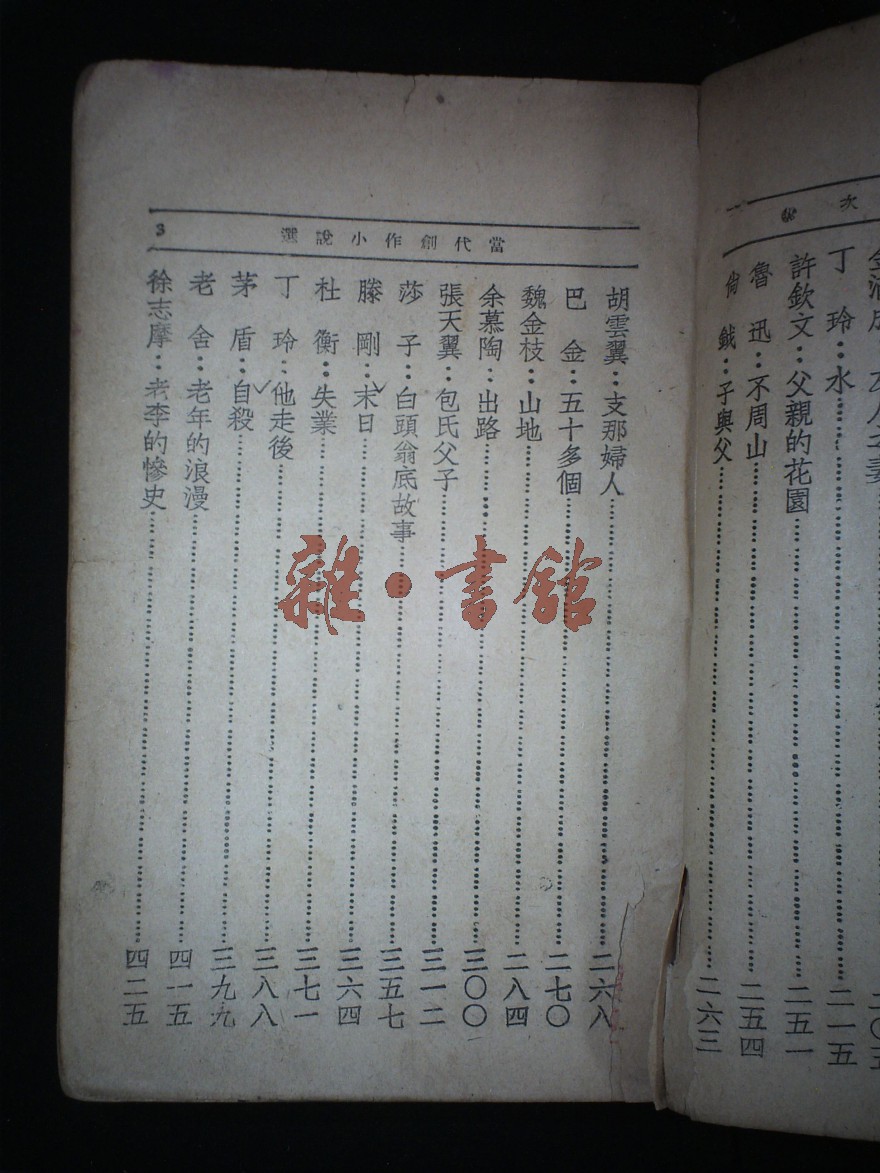 次
丁玲：水……二一五
許欽文：父親的花園……二五一
魯迅：不周山……二五四
尙鉞：子與父……二六三
當代創作小說選
3
胡雲翼：支那婦人……二六八
巴金：五十多個……二七〇
魏金枝：山地……二八四
余慕陶：出路……三〇〇
張天翼：包氏父子……三一二
莎子：白頭翁底故事……三五七
滕剛：末日……三六四
杜衡：失業……三七一
丁玲：他走後……三八八
茅盾：自殺……三九九
老舍：老年的浪漫……四一五
徐志摩：老李的慘史……四二五
雜·書館